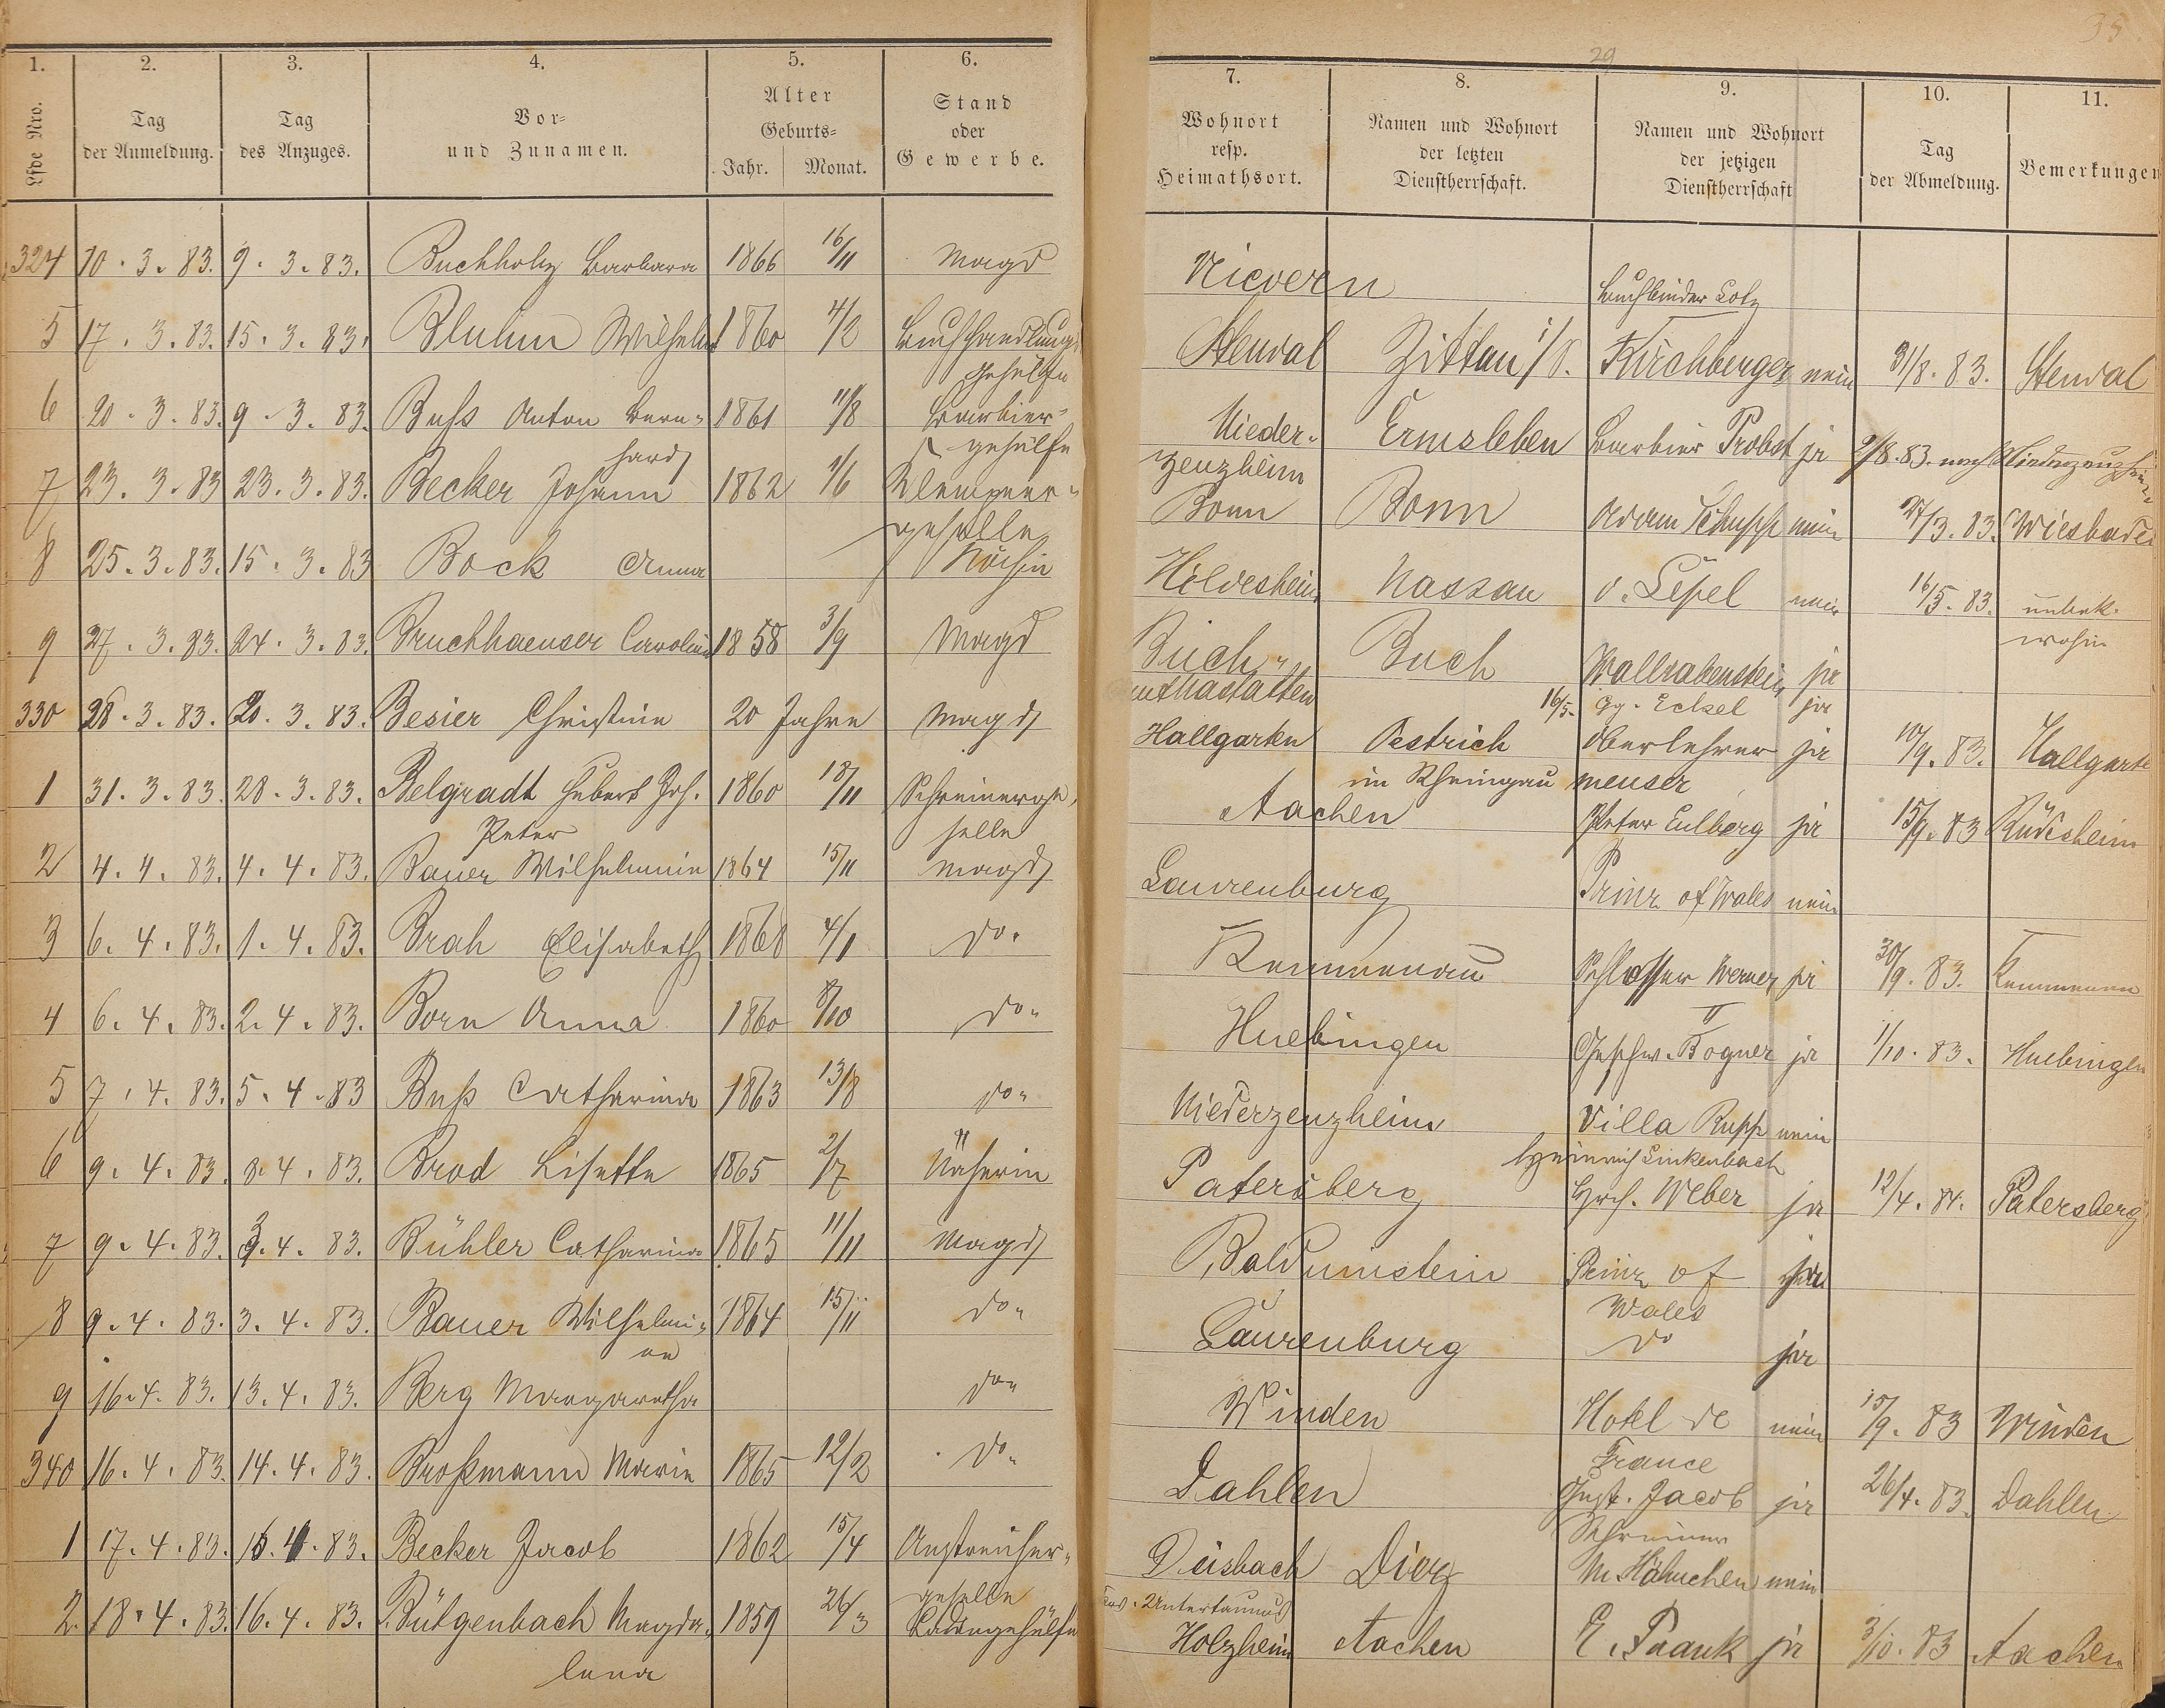 35
29
1. 2. 3. 4. 5. 6. 7. 8. 9. 10. 11.
Lfde Nro. | Tag der Anmeldung. | Tag des Anzuges. | Vor- und Zunamen. | Alter Geburts- Jahr. Monat. | Stand oder Gewerbe. | Wohnort resp. Heimathsort. | Namen und Wohnort der letzten Dienstherrschaft. | Namen und Wohnort der jetzigen Dienstherrschaft | Tag der Abmeldung. | Bemerkungen
324 10. 3. 83. 9. 3. 83. Buchholz Barbara 1866 16/11 Magd Nievern Buchbinder Lotz
5 17. 3. 83. 15. 3. 83. Bluhm Wilhelm 1860 4/2 Buchhandlungs gehülfe Stendal Zittau i/S. Kirchberger nein 31/8. 83. Stendal
6 20. 3. 83. 9. 3. 83. Buss Anton Bern- hard 1861 11/8 Barbier- gehülfe Nieder- zeuzheim Ermsleben Barbier Probst ja 2/8. 83. nach Niederzeuzheim
7 23. 3. 83 23. 3. 83. Becker Johann 1862 1/6 Klempner- geselle Bonn Bonn Adam Schupp nein 27/3. 83. Wiesbaden
8 25. 3. 83. 15. 3. 83 Bock Anna Köchin Hildesheim Nassau v. Lepel nein 16/5. 83. unbek. wohin
9 27. 3. 83. 24. 3. 83. Bruchhaeuser Carolina 1858 3/9 Magd Buch Buch Wallrabenstein ja
16/5. Gg. Eckel ja
330 28. 3. 83. 20. 3. 83. Besier Christine 20 Jahre Magd Hallgarten Oestrich im Rheingau Oberlehrer ja meuser 10/9. 83. Hallgarte
1 31. 3. 83. 28. 3. 83. Belgradt Hubert Joh. Peter 1860 18/11 Schreinerge- selle Aachen Peter Eulberg ja 15/9. 83 Rüdesheim
2 4. 4. 83. 4. 4. 83. Bauer Wilhelmine 1864 15/11 Magd Laurenburg Prinz of Wales nein
3 6. 4. 83. 1. 4. 83. Brah Elisabeth 1868 4/1 do. Kemmenau Schlosser Werner ja 30/9. 83. Kemmenau
4 6. 4. 83. 2. 4. 83. Born Anna 1860 8/10 do. Huebingen Geschw. Bogner ja 1/10. 83. Huebingen
5 7. 4. 83. 5. 4. 83 Buß Catharina 1863 13/8 do. Niederzeuzheim Villa Rupp nein
Heinrich Linkenbach
6 9. 4. 83. 8. 4. 83. Brod Lisette 1865 2/7 Näherin Patersberg Hrch. Weber ja 12/4. 84. Patersberg
7 9. 4. 83. 3. 4. 83. Bühler Catharina 1865 11/11 Magd Balduinstein Prinz of Wales ja
8 9. 4. 83. 3. 4. 83. Bauer Wilhelmi- ne 1864 15/11 do. Laurenburg do ja
9 16. 4. 83. 13. 4. 83. Berg Margaretha do. Winden Hotel de France nein 15/9. 83 Winden
340 16. 4. 83. 14. 4. 83. Broßmann Marie 1865 12/2 do. Dahlen Gust. Jacob ja Schreiner 26/4. 83. Dahlen
1 17. 4. 83. 15. 4. 83. Becker Jacob 1862 15/4 Anstreicher- geselle Deisbach Untertaunus Diez M. Hähnchen nein
2. 18. 4. 83. 16. 4. 83. Bütgenbach Magda- lena 1859 26/3 Ladengehülfe Holzheim Aachen E. Paauk ja 3/10. 83 Aachen